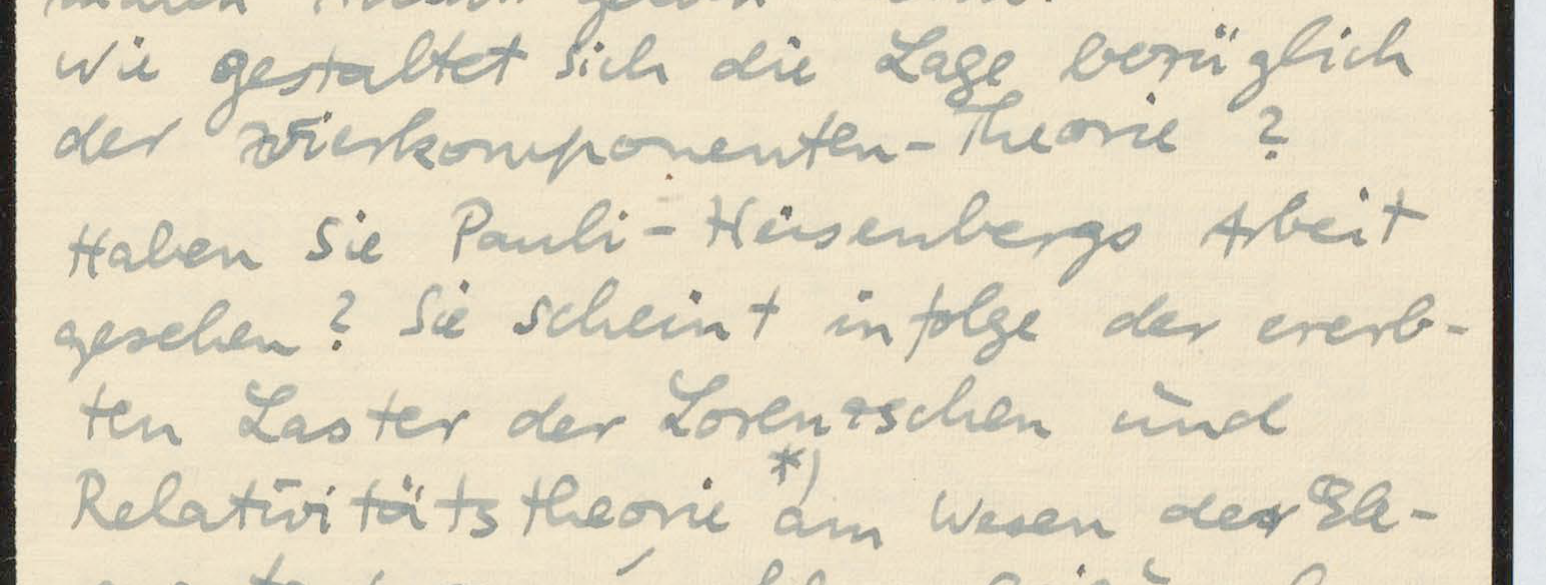 Wie gestaltet sich die Lage bezüglich
der Vierkomponenten-Theorie ?
Haben Sie Pauli-Heisenbergs Arbeit
gesehen? Sie scheint infolge der ererb-
ten Laster der Lorentzschen und
Relativitätstheorie *) am Wesen der Ele-